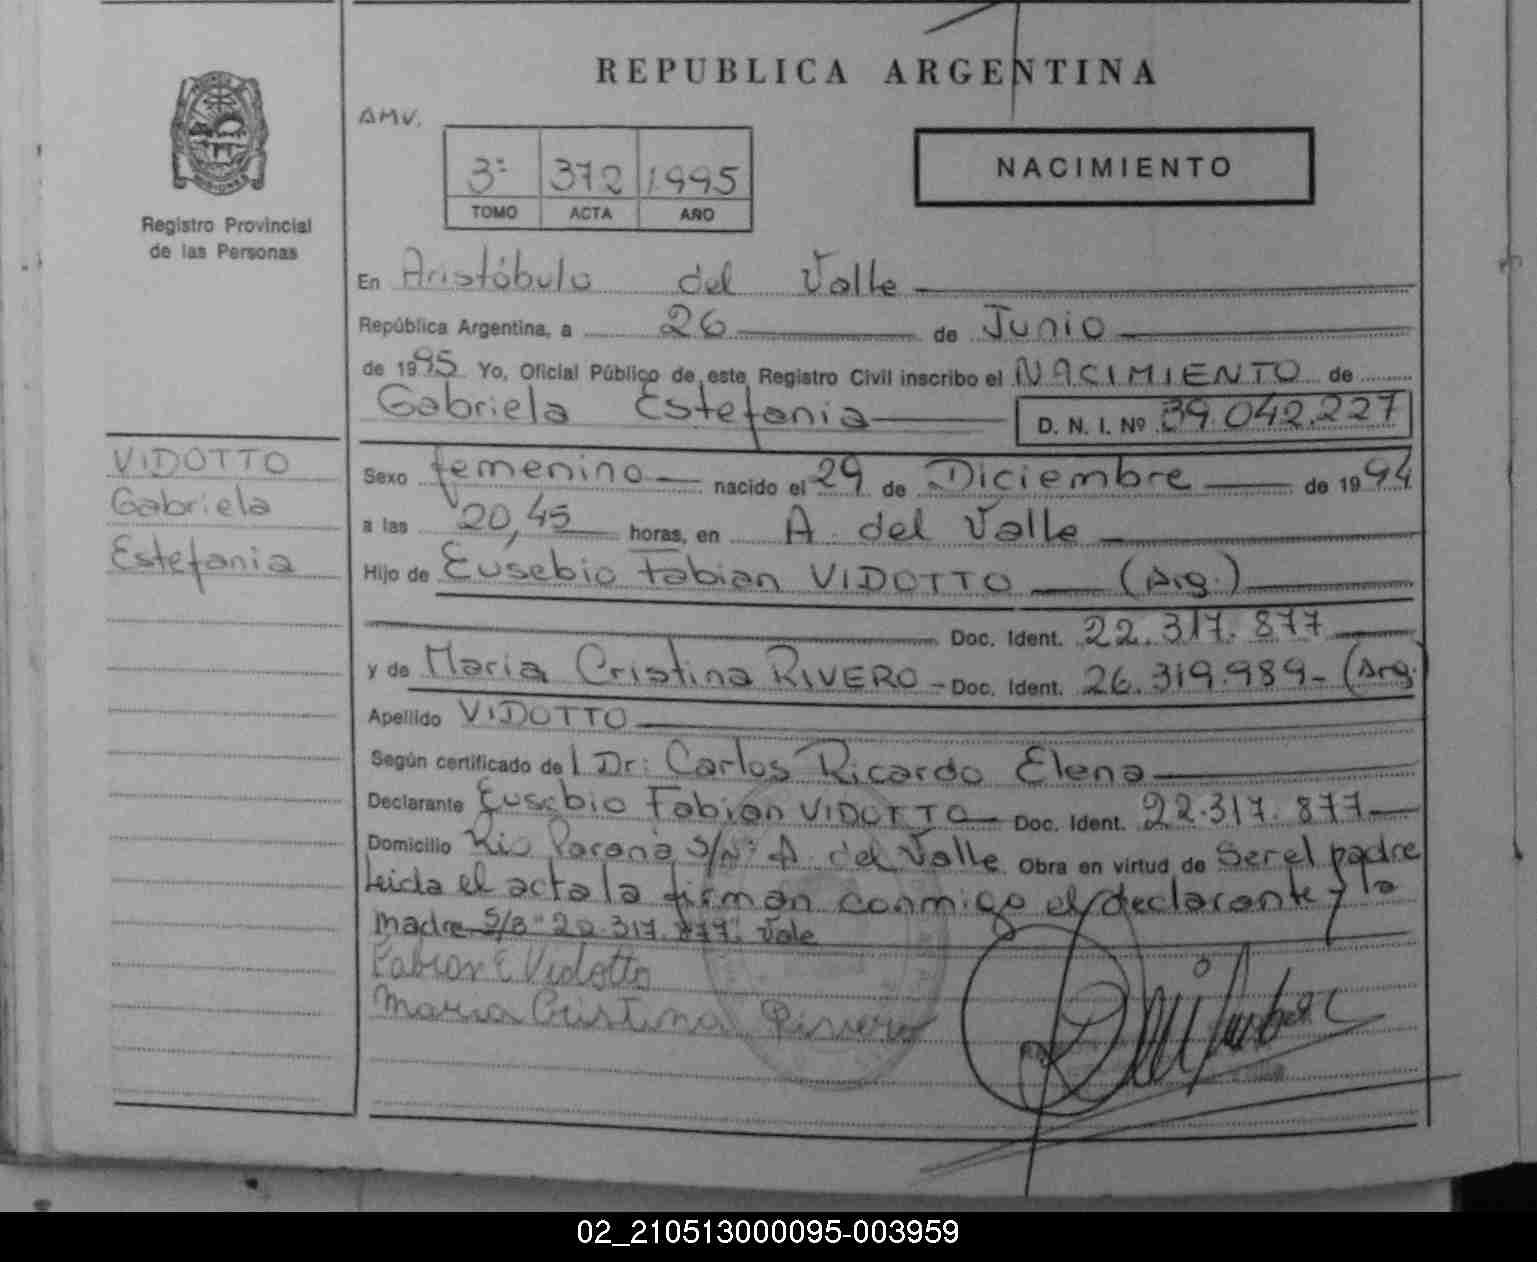 REPUBLICA ARGENTINA
AMV.
3º 372 1995
TOMO ACTA AÑO
NACIMIENTO
Registro Provincial
de las Personas
En Aristóbulo del Valle
República Argentina, a 26 de Junio
de 1995 Yo, Oficial Público de este Registro Civil inscribo el NACIMIENTO de
Gabriela Estefania D. N. I. Nº 39.042.227
VIDOTTO
Gabriela
Estefania
Sexo femenino nacido el 29 de Diciembre de 1994
a las 20,45 horas, en A. del Valle
Hijo de Eusebio Fabian VIDOTTO (Arg.)
Doc. Ident. 22.317.877
y de Maria Cristina RIVERO - Doc. Ident. 26.319.989- (Arg.
Apellido VIDOTTO
Según certificado del Dr: Carlos Ricardo Elena
Declarante Eusebio Fabian VIDOTTO Doc. Ident. 22.317.877
Domicilio Rio Parana S/Nº A. del Valle Obra en virtud de Ser el padre
leida el acta la firman conmigo el declarante y la
madre S/B "22.317.877" Vale
Fabian E Vidotto
Maria Cristina Rivero
02_210513000095-003959